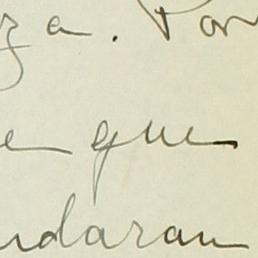 za. Por
e que
udaran